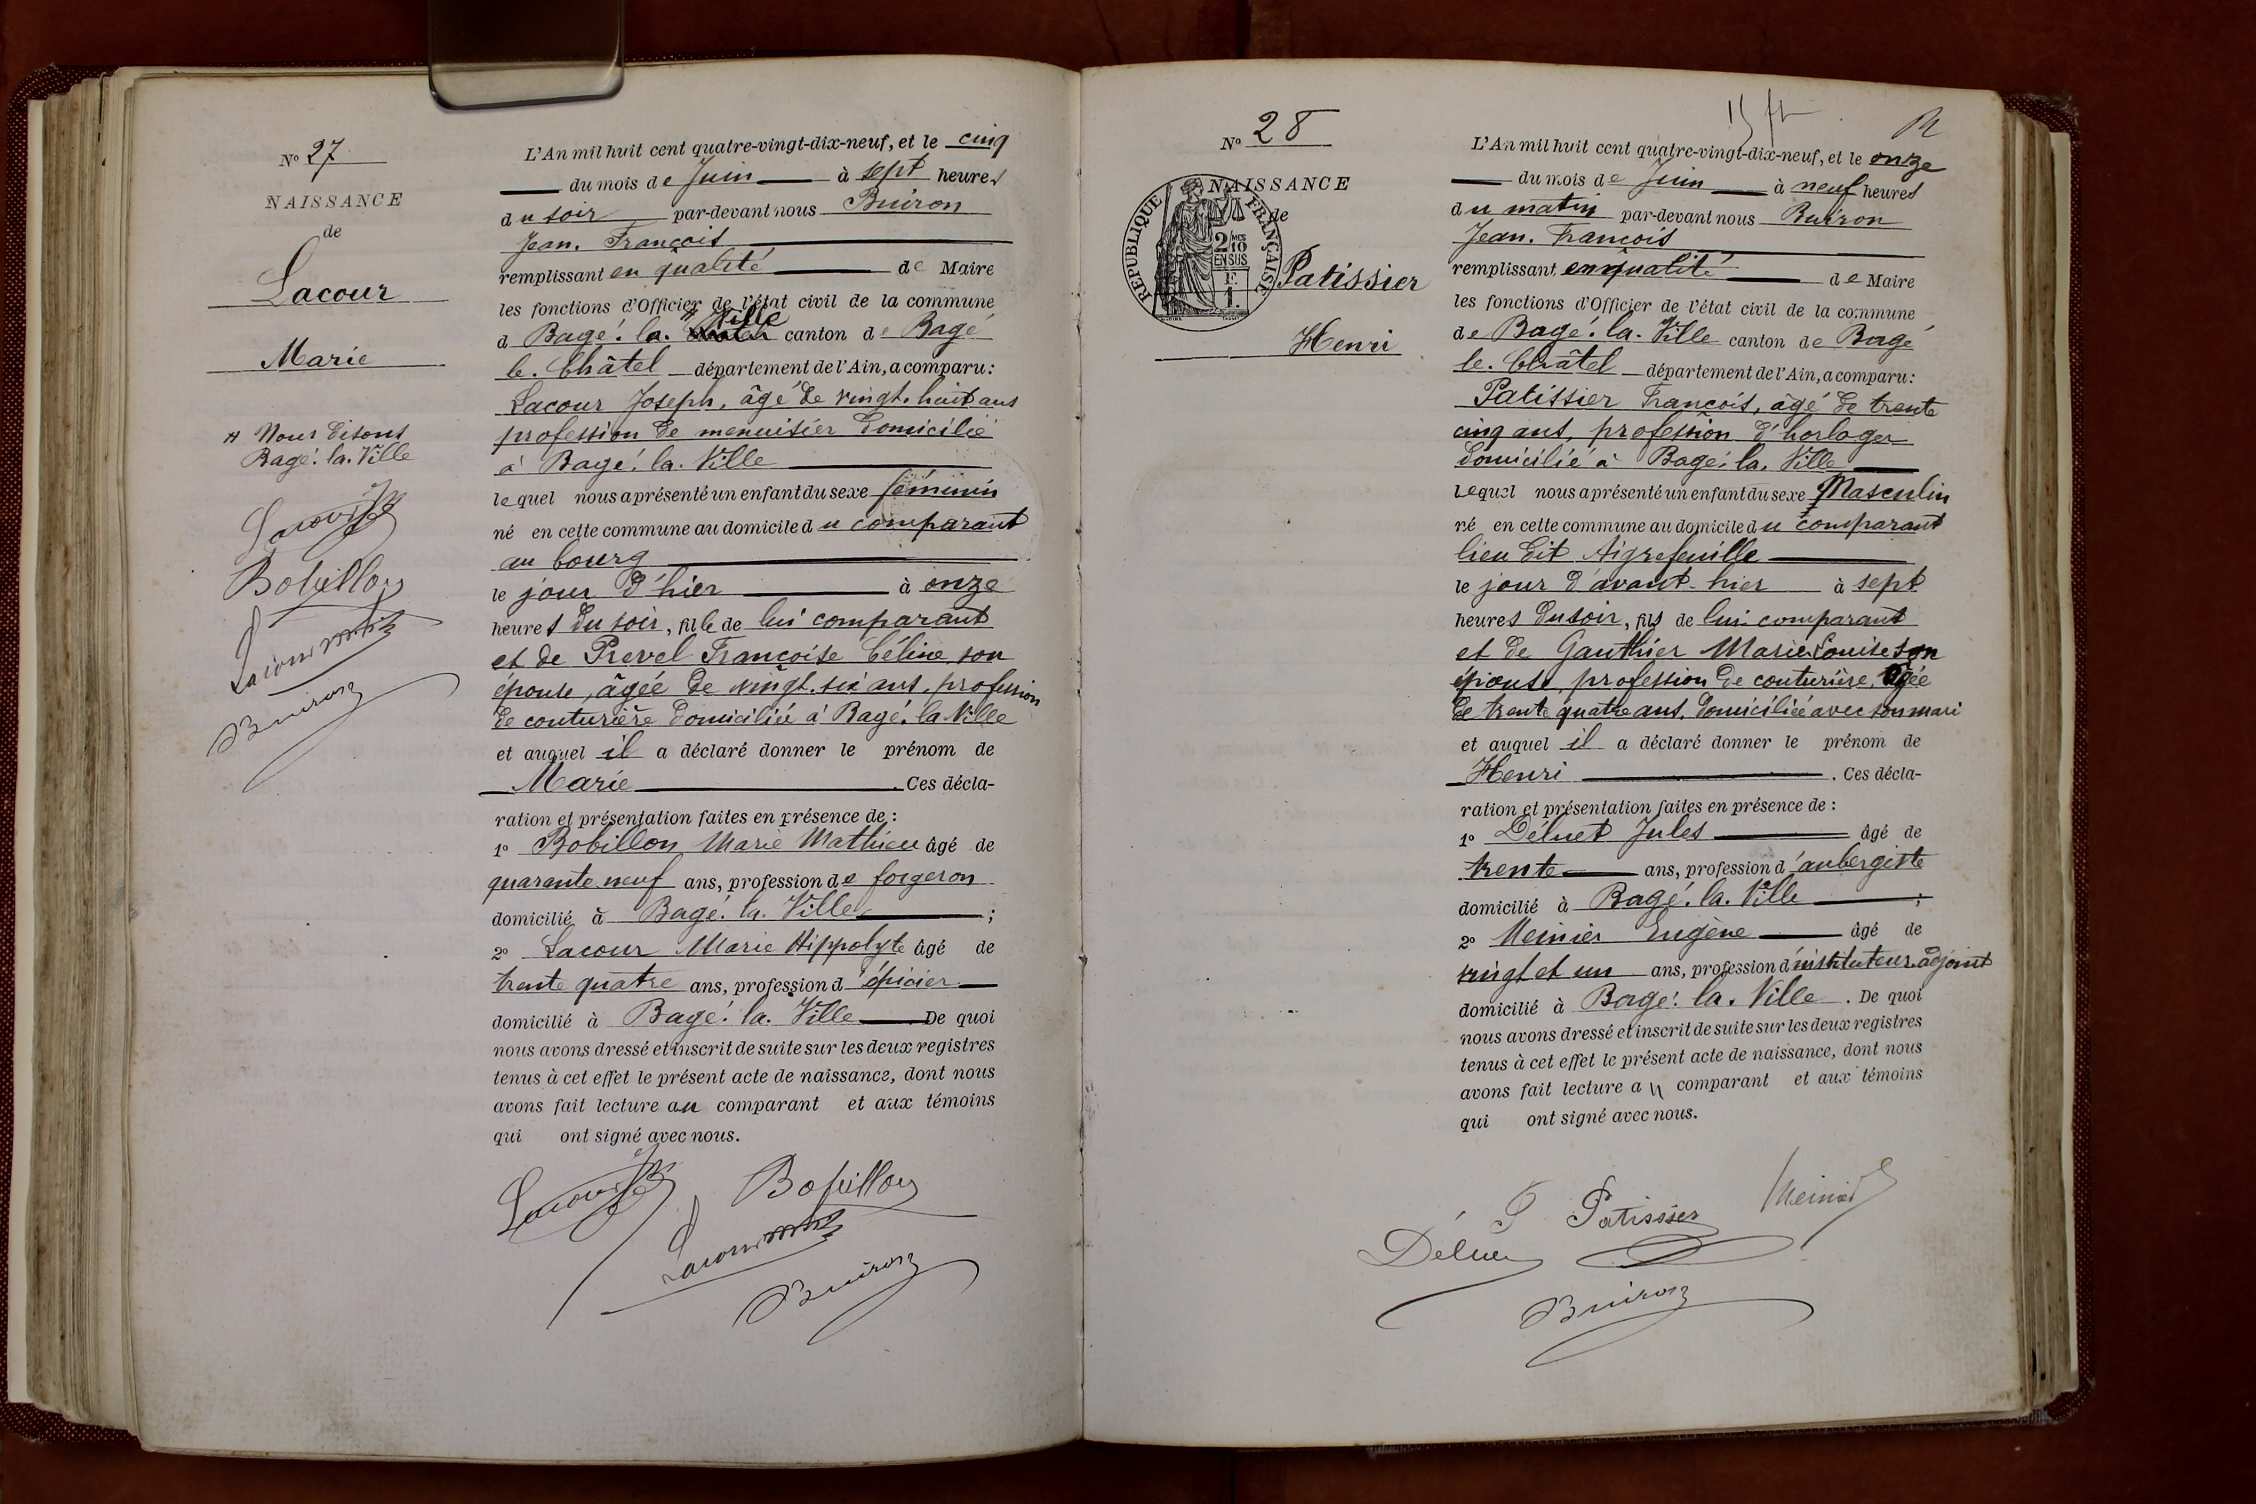 Nº 27
NAISSANCE
de
Lacour
Marie
Nous disons
Bagé-la-Ville
Bobillon
Buiron
L'An mil huit cent quatre-vingt-dix-neuf, et le cinq
du mois de Juin à sept heures
du soir par-devant nous Buiron
Jean-François
remplissant en qualité de Maire
les fonctions d'Officier de l'état civil de la commune
d Bagé-la-Ville canton de Bagé
le-Châtel département de l'Ain, a comparu:
Lacour Joseph, âgé de vingt-huit ans
profession de menuisier domicilié
à Bagé-la-Ville
lequel nous a présenté un enfant du sexe féminin
né en cette commune au domicile du comparant
au bourg
le jour d'hier à onze
heures du soir, fille de lui comparant
et de Prevel Françoise Céline son
épouse, âgée de vingt-six ans, profession
de couturière domiciliée à Bagé-la-Ville
et auquel il a déclaré donner le prénom de
Marie . Ces décla-
ration et présentation faites en présence de :
1º Bobillon Marie Mathieu âgé de
quarante neuf ans, profession de forgeron
domicilié à Bagé-la-Ville ;
2º Lacour Marie Hippolyte âgé de
trente quatre ans, profession d'épicier
domicilié à Bagé-la-Ville De quoi
nous avons dressé et inscrit de suite sur les deux registres
tenus à cet effet le présent acte de naissance, dont nous
avons fait lecture au comparant et aux témoins
qui ont signé avec nous.
Bobillon
Buiron
Nº 28
NAISSANCE
de
RÉPUBLIQUE FRANÇAISE
2 MES
10
EN SUS
1 F.
Patissier
Henri
L'An mil huit cent quatre-vingt-dix-neuf, et le onze
du mois de Juin à neuf heures
du matin par-devant nous Buiron
Jean-François
remplissant en qualité de Maire
les fonctions d'Officier de l'état civil de la commune
de Bagé-la-Ville canton de Bagé
le-Châtel département de l'Ain, a comparu:
Patissier François, âgé de trente
cinq ans, profession d'horloger
domicilié à Bagé-la-Ville
Lequel nous a présenté un enfant du sexe Masculin
né en cette commune au domicile du comparant
lieu dit Aigrefeuille
le jour d'avant-hier à sept
heures du soir, fils de lui comparant
et de Gauthier Marie Louise son
épouse, profession de couturière, âgée
de trente quatre ans, domiciliée avec son mari
et auquel il a déclaré donner le prénom de
Henri . Ces décla-
ration et présentation faites en présence de :
1º Déluet Jules âgé de
trente ans, profession d'aubergiste
domicilié à Bagé-la-Ville ;
2º Meinier Eugène âgé de
vingt et un ans, profession d'instituteur adjoint
domicilié à Bagé-la-Ville . De quoi
nous avons dressé et inscrit de suite sur les deux registres
tenus à cet effet le présent acte de naissance, dont nous
avons fait lecture au comparant et aux témoins
qui ont signé avec nous.
Patissier
Buiron